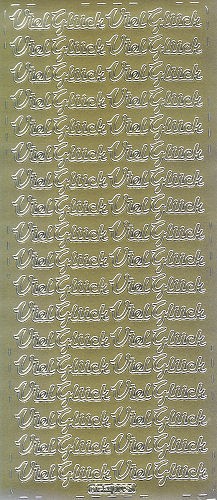 Viel Glück Viel Glück
Viel Glück Viel Glück
Viel Glück Viel Glück
Viel Glück Viel Glück
Viel Glück Viel Glück
Viel Glück Viel Glück
Viel Glück Viel Glück
Viel Glück Viel Glück
Viel Glück Viel Glück
Viel Glück Viel Glück
Viel Glück Viel Glück
Viel Glück Viel Glück
Viel Glück Viel Glück
Viel Glück Viel Glück
Viel Glück Viel Glück
Viel Glück Viel Glück
Viel Glück Viel Glück
Viel Glück Viel Glück